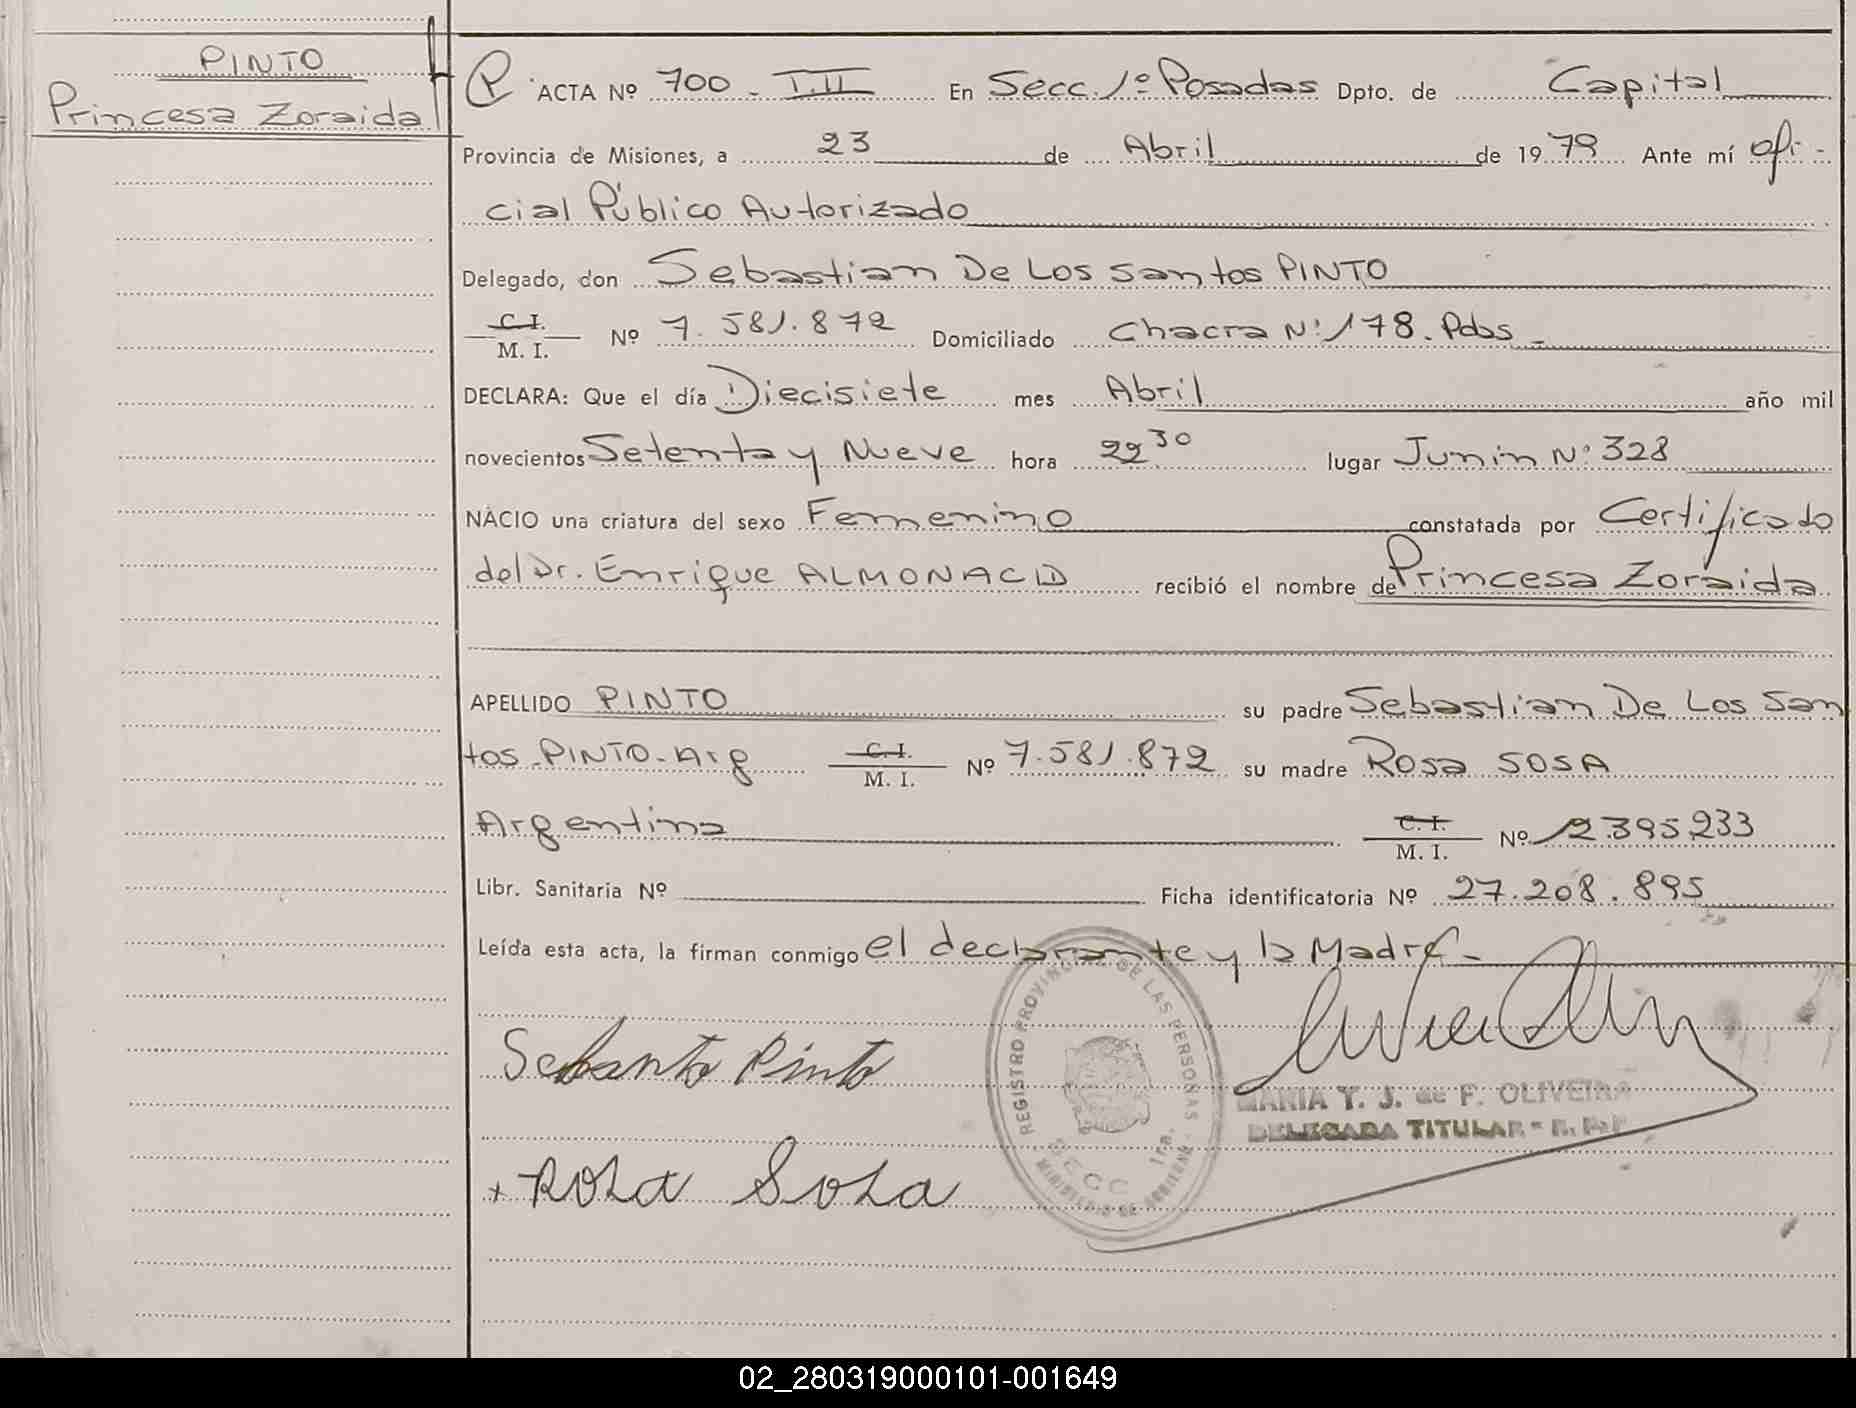 PINTO
Princesa Zoraida
P ACTA Nº 700 - T. II En Secc. 1º Posadas Dpto. de Capital
Provincia de Misiones, a 23 de Abril de 1979 Ante mí ofi-
cial Público Autorizado
Delegado, don Sebastian De Los Santos PINTO
C. I.
M. I. Nº 7.581.872 Domiciliado Chacra Nº 178. Pdas -
DECLARA: Que el día Diecisiete mes Abril año mil
novecientos Setenta y Nueve hora 22.30 lugar Junin Nº 328
NACIO una criatura del sexo Femenino constatada por Certificado
del Dr. Enrique ALMONACID recibió el nombre de Princesa Zoraida
APELLIDO PINTO su padre Sebastian De Los San
tos - PINTO - Arg C. I. M. I. Nº 7.581.872 su madre Rosa SOSA
Argentina C. I. M. I. Nº 12.395.233
Libr. Sanitaria Nº Ficha identificatoria Nº 27.208.895
Leída esta acta, la firman conmigo el declarante y la Madre -
Pinto
+ Rosa Sosa
REGISTRO PROVINCIAL DE LAS PERSONAS
SECC 1ra.
MINISTERIO DE GOBIERNO
MARIA T. J. de F. OLIVEIRA
DELEGADA TITULAR - R. P. P
02_280319000101-001649